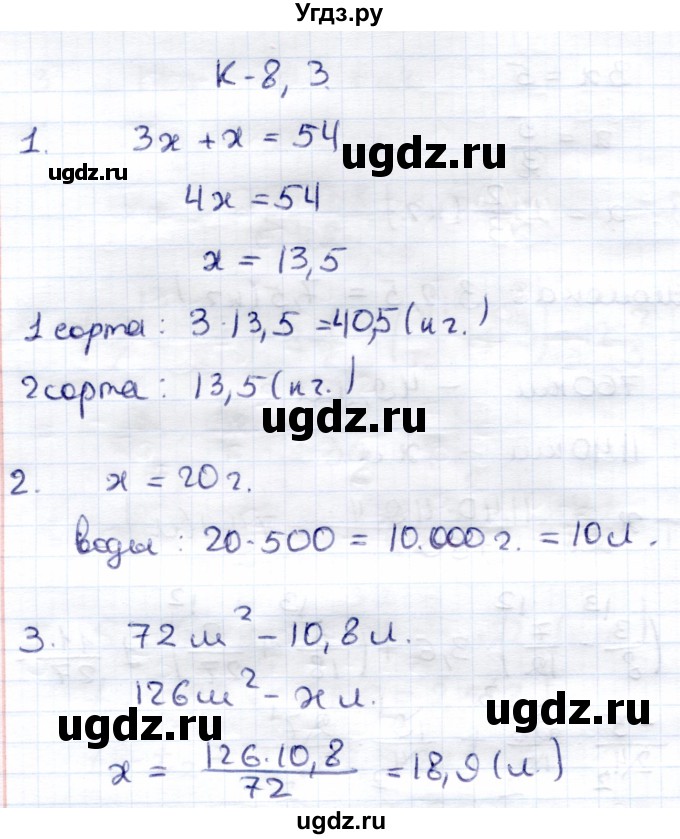 Угдз.ру
К-8, 3.
1. 3х + х = 54
ugdz.ru
ugdz.ru
4х = 54
х = 13,5
1 сорта: 3·13,5 = 40,5 (кг.)
2 сорта: 13,5 (кг.)
ugdz.ru
2. х = 20 г.
воды: 20·500 = 10.000 г. = 10 л.
ugdz.ru
3. 72 м² - 10,8 л.
126 м² - х л.
ugdz.ru
ugdz.ru
х = 126·10,8 / 72 = 18,9 (л.)
ugdz.ru